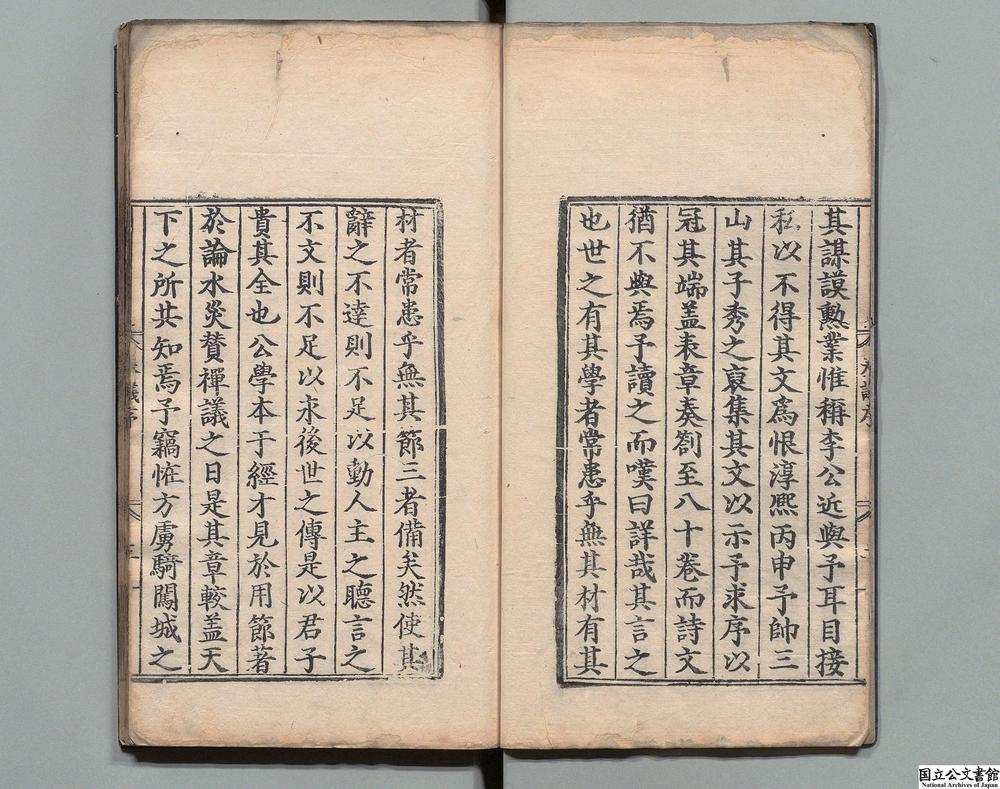 其謀謨勲業惟稱李公近與予耳目接
私以不得其文爲恨淳熈丙申予帥三
山其子秀之裒集其文以示予求序以
冠其端盖表章奏劄至八十卷而詩文
猶不與焉予讀之而嘆曰詳哉其言之
也世之有其學者常患乎無其材有其
材者常患乎無其節三者備矣然使其
辭之不達則不足以動人主之聽言之
不文則不足以永後世之傳是以君子
貴其全也公學本于經才見於用節著
於論水災賛禪議之日是其章較盖天
下之所共知焉予竊恠方虜騎闖城之
国立公文書館
National Archives of Japan